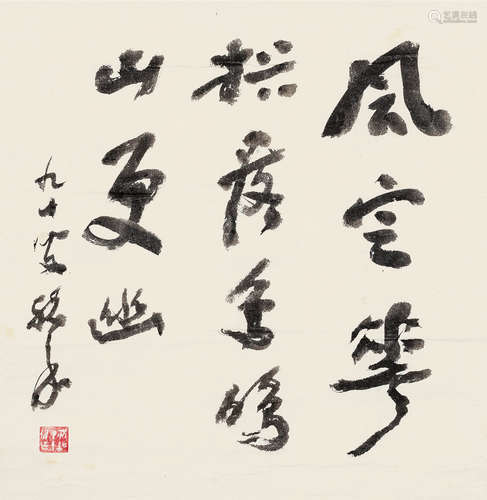 風定華
猶落鳥鳴
山更幽
九十叟